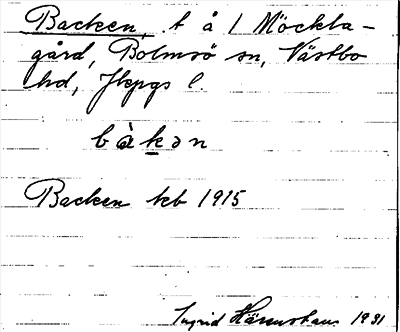 Backen, t å 1 Möckla-
gård, Bolmsö sn, Västbo
hd, Jkpgs l.
bàkən
Backen kb 1915
Ingrid 1931